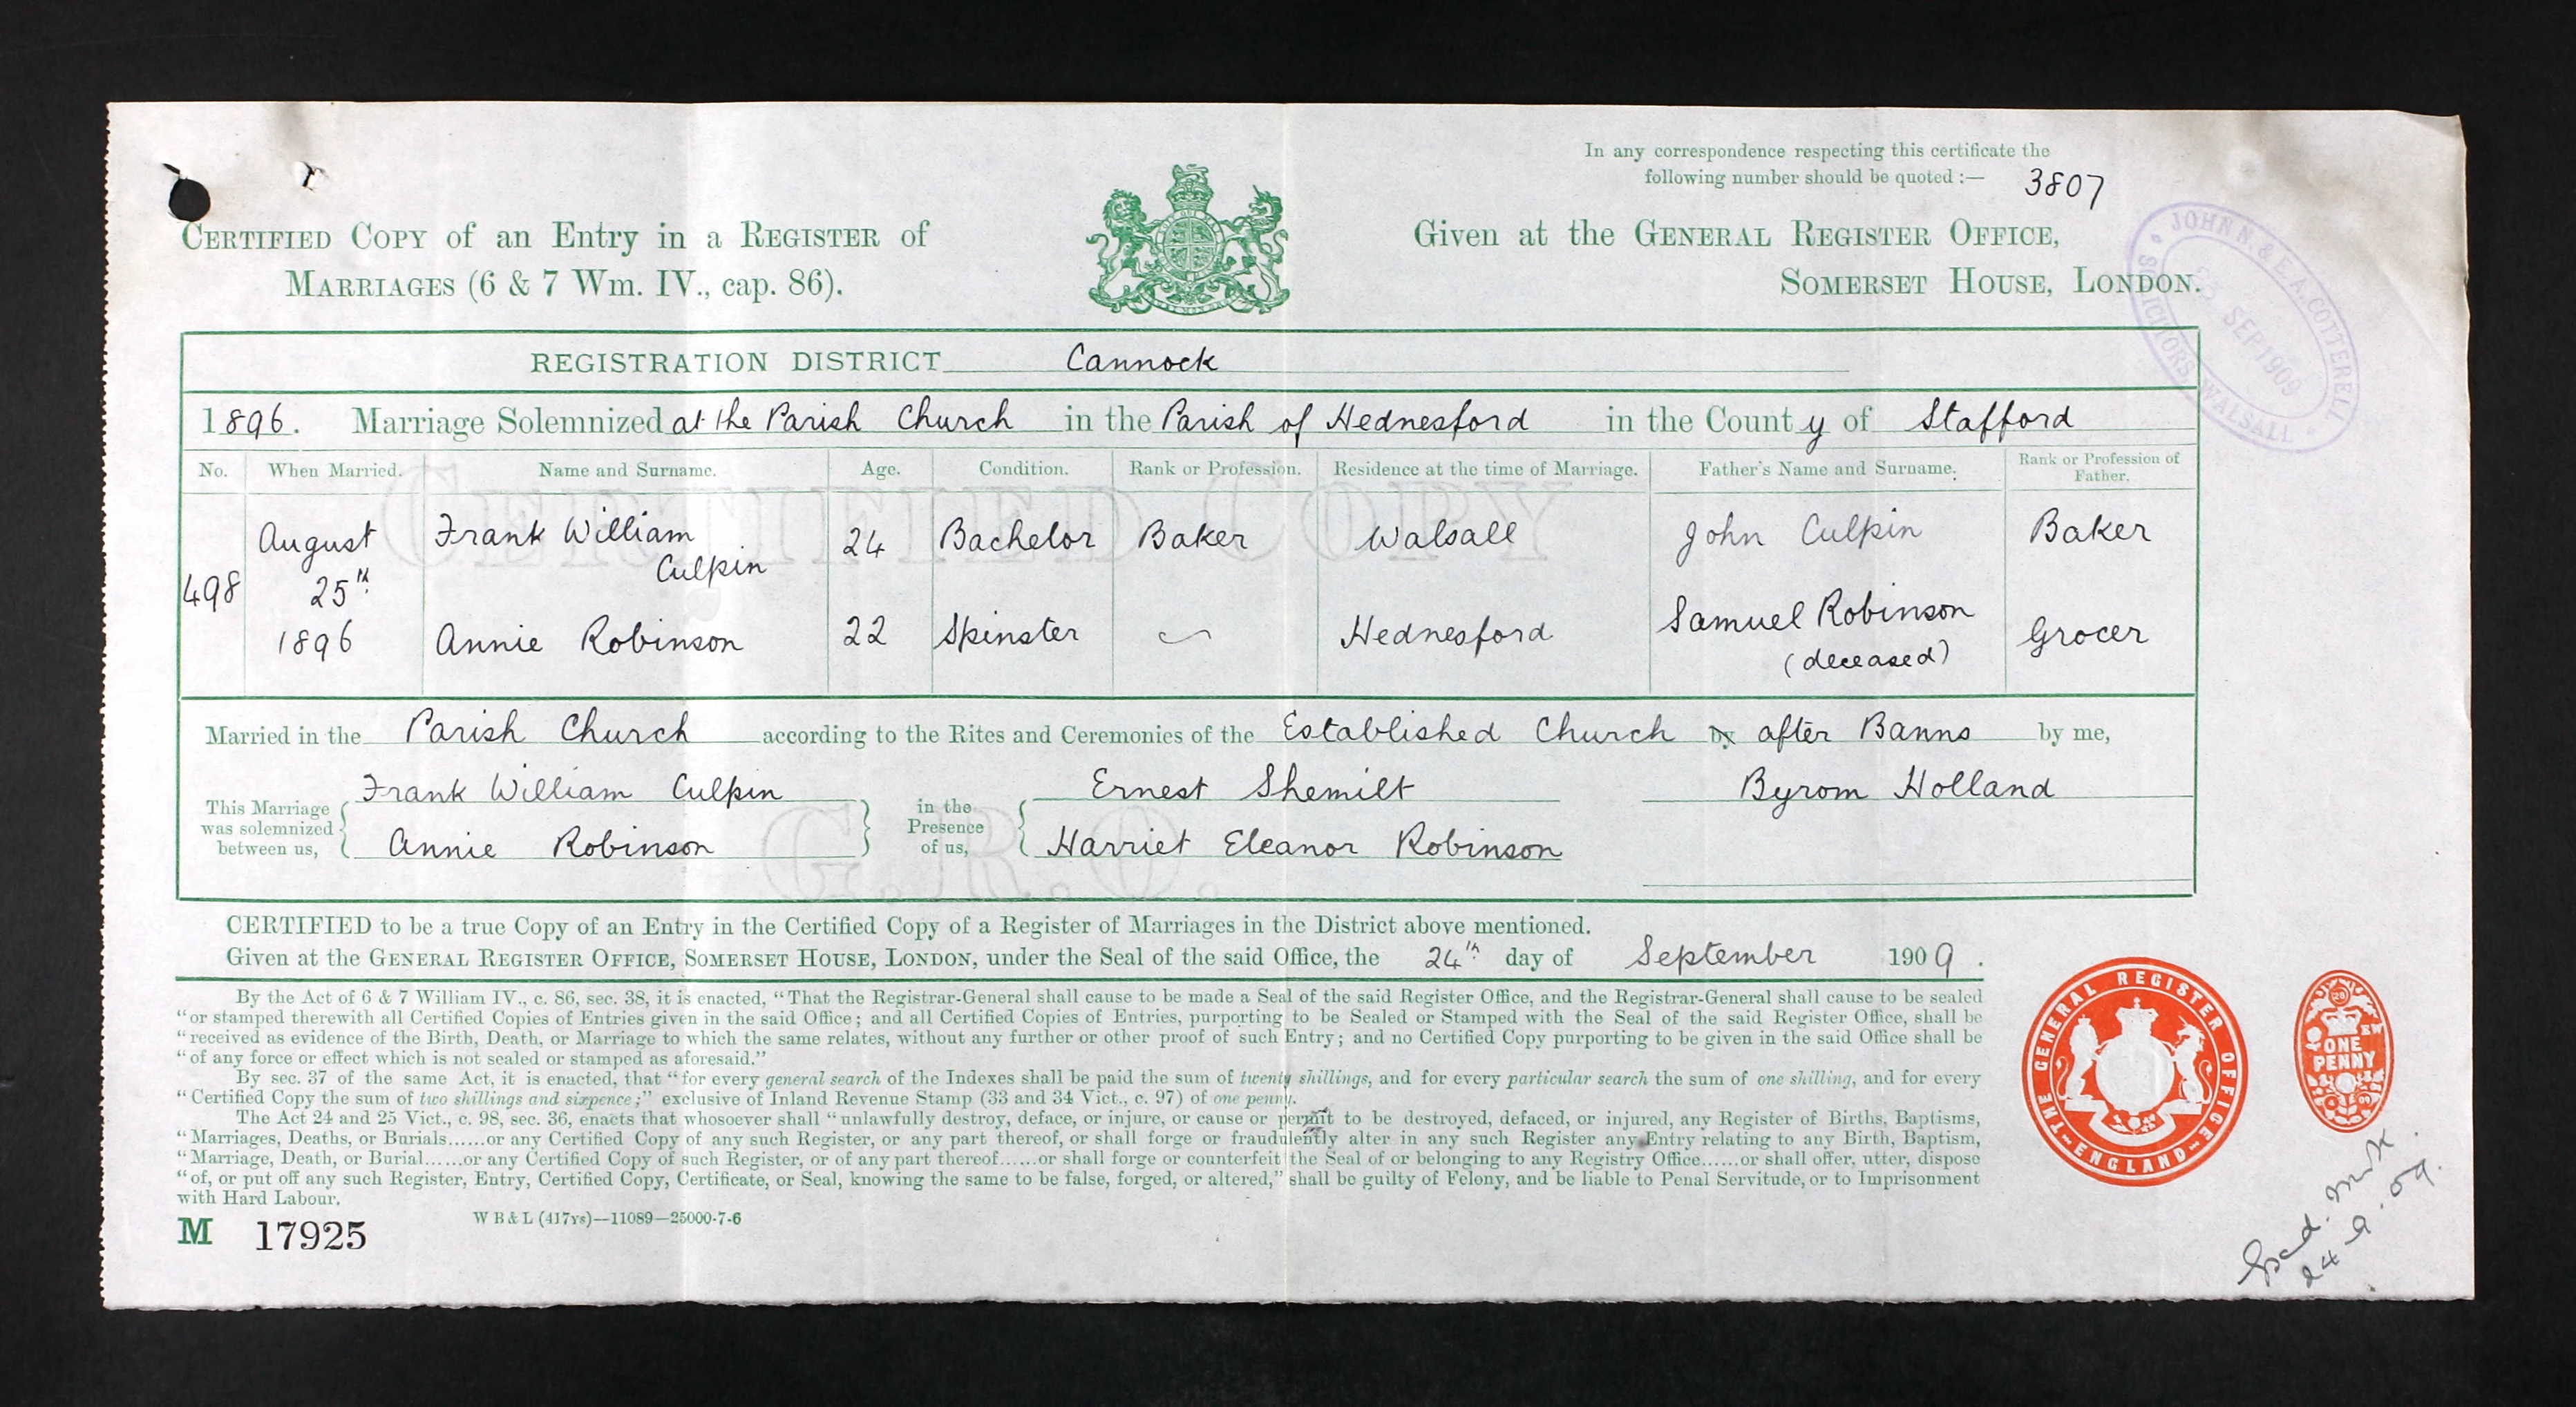 In any correspondence respecting this certificate the
following number should be quoted :— 3807
CERTIFIED COPY of an Entry in a REGISTER of
MARRIAGES (6 & 7 Wm. IV., cap. 86).
Given at the GENERAL REGISTER OFFICE,
SOMERSET HOUSE, LONDON.
JOHN N. & E.A. COTTERELL
SOLICITORS WALSALL
SEP 1909
REGISTRATION DISTRICT Cannock
1896. Marriage Solemnized at the Parish Church in the Parish of Hednesford in the County of Stafford
No. When Married. Name and Surname. Age. Condition. Rank or Profession. Residence at the time of Marriage. Father's Name and Surname. Rank or Profession of Father.
CERTIFIED COPY
498 August 25th 1896
Frank William Culpin 24 Bachelor Baker Walsall John Culpin Baker
Annie Robinson 22 Spinster Hednesford Samuel Robinson (deceased) Grocer
Married in the Parish Church according to the Rites and Ceremonies of the Established Church by after Banns by me,
This Marriage was solemnized between us,
Frank William Culpin
Annie Robinson
in the Presence of us,
Ernest Shemilt
Harriet Eleanor Robinson
Byrom Holland
G.R.O.
CERTIFIED to be a true Copy of an Entry in the Certified Copy of a Register of Marriages in the District above mentioned.
Given at the GENERAL REGISTER OFFICE, SOMERSET HOUSE, LONDON, under the Seal of the said Office, the 24th day of September 1909.
By the Act of 6 & 7 William IV., c. 86, sec. 38, it is enacted, "That the Registrar-General shall cause to be made a Seal of the said Register Office, and the Registrar-General shall cause to be sealed
"or stamped therewith all Certified Copies of Entries given in the said Office; and all Certified Copies of Entries, purporting to be Sealed or Stamped with the Seal of the said Register Office, shall be
"received as evidence of the Birth, Death, or Marriage to which the same relates, without any further or other proof of such Entry; and no Certified Copy purporting to be given in the said Office shall be
"of any force or effect which is not sealed or stamped as aforesaid."
By sec. 37 of the same Act, it is enacted, that "for every general search of the Indexes shall be paid the sum of twenty shillings, and for every particular search the sum of one shilling, and for every
"Certified Copy the sum of two shillings and sixpence;" exclusive of Inland Revenue Stamp (33 and 34 Vict., c. 97) of one penny.
The Act 24 and 25 Vict., c. 98, sec. 36, enacts that whosoever shall "unlawfully destroy, deface, or injure, or cause or permit to be destroyed, defaced, or injured, any Register of Births, Baptisms,
"Marriages, Deaths, or Burials......or any Certified Copy of any such Register, or any part thereof, or shall forge or fraudulently alter in any such Register any Entry relating to any Birth, Baptism,
"Marriage, Death, or Burial......or any Certified Copy of such Register, or of any part thereof......or shall forge or counterfeit the Seal of or belonging to any Registry Office......or shall offer, utter, dispose
"of, or put off any such Register, Entry, Certified Copy, Certificate, or Seal, knowing the same to be false, forged, or altered," shall be guilty of Felony, and be liable to Penal Servitude, or to Imprisonment
with Hard Labour.
M 17925
W B & L (417rs)—11089—25000-7-6
THE GENERAL REGISTER OFFICE
ENGLAND
ONE
PENNY
24.9.09.